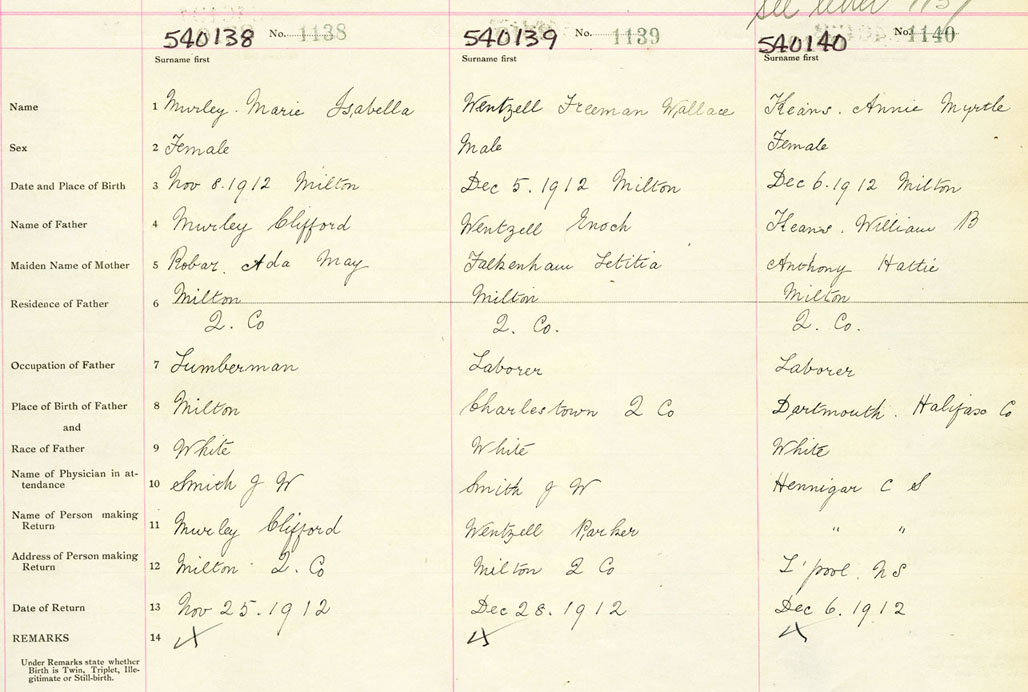 See letter 1137
540138 No. 1138 540139 No. 1139 540140 No. 1140
Surname first Surname first Surname first
Name 1 Murley. Marie Isabella Wentzell Freeman Wallace Keans. Annie Myrtle
Sex 2 Female Male Female
Date and Place of Birth 3 Nov 8. 1912 Milton Dec 5. 1912 Milton Dec 6. 1912 Milton
Name of Father 4 Murley Clifford Wentzell Enoch Keans. William B
Maiden Name of Mother 5 Robar. Ada May Falkenham Letitia Anthony Hattie
Residence of Father 6 Milton Milton Milton
Q. Co Q. Co. Q. Co.
Occupation of Father 7 Lumberman Laborer Laborer
Place of Birth of Father 8 Milton Charlestown Q Co Dartmouth. Halifax Co
and
Race of Father 9 White White White
Name of Physician in at-
tendance 10 Smith J W Smith J W Hennigar C S
Name of Person making
Return 11 Murley Clifford Wentzell Parker " "
Address of Person making
Return 12 Milton Q. Co Milton Q Co L'pool. NS
Date of Return 13 Nov 25. 1912 Dec 28. 1912 Dec 6. 1912
REMARKS 14
Under Remarks state whether
Birth is Twin, Triplet, Ille-
gitimate or Still-birth.